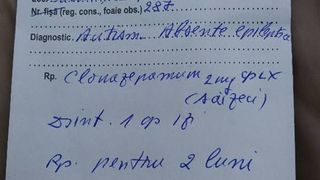 Nr. fişa (reg. cons., foaie obs.) 287
Diagnostic Autism Absente epileptice
Rp. Clonazepamum 2 mg cp LX
(săizeci)
D.s. int. 1 cp 1/
Rp. pentru 2 luni